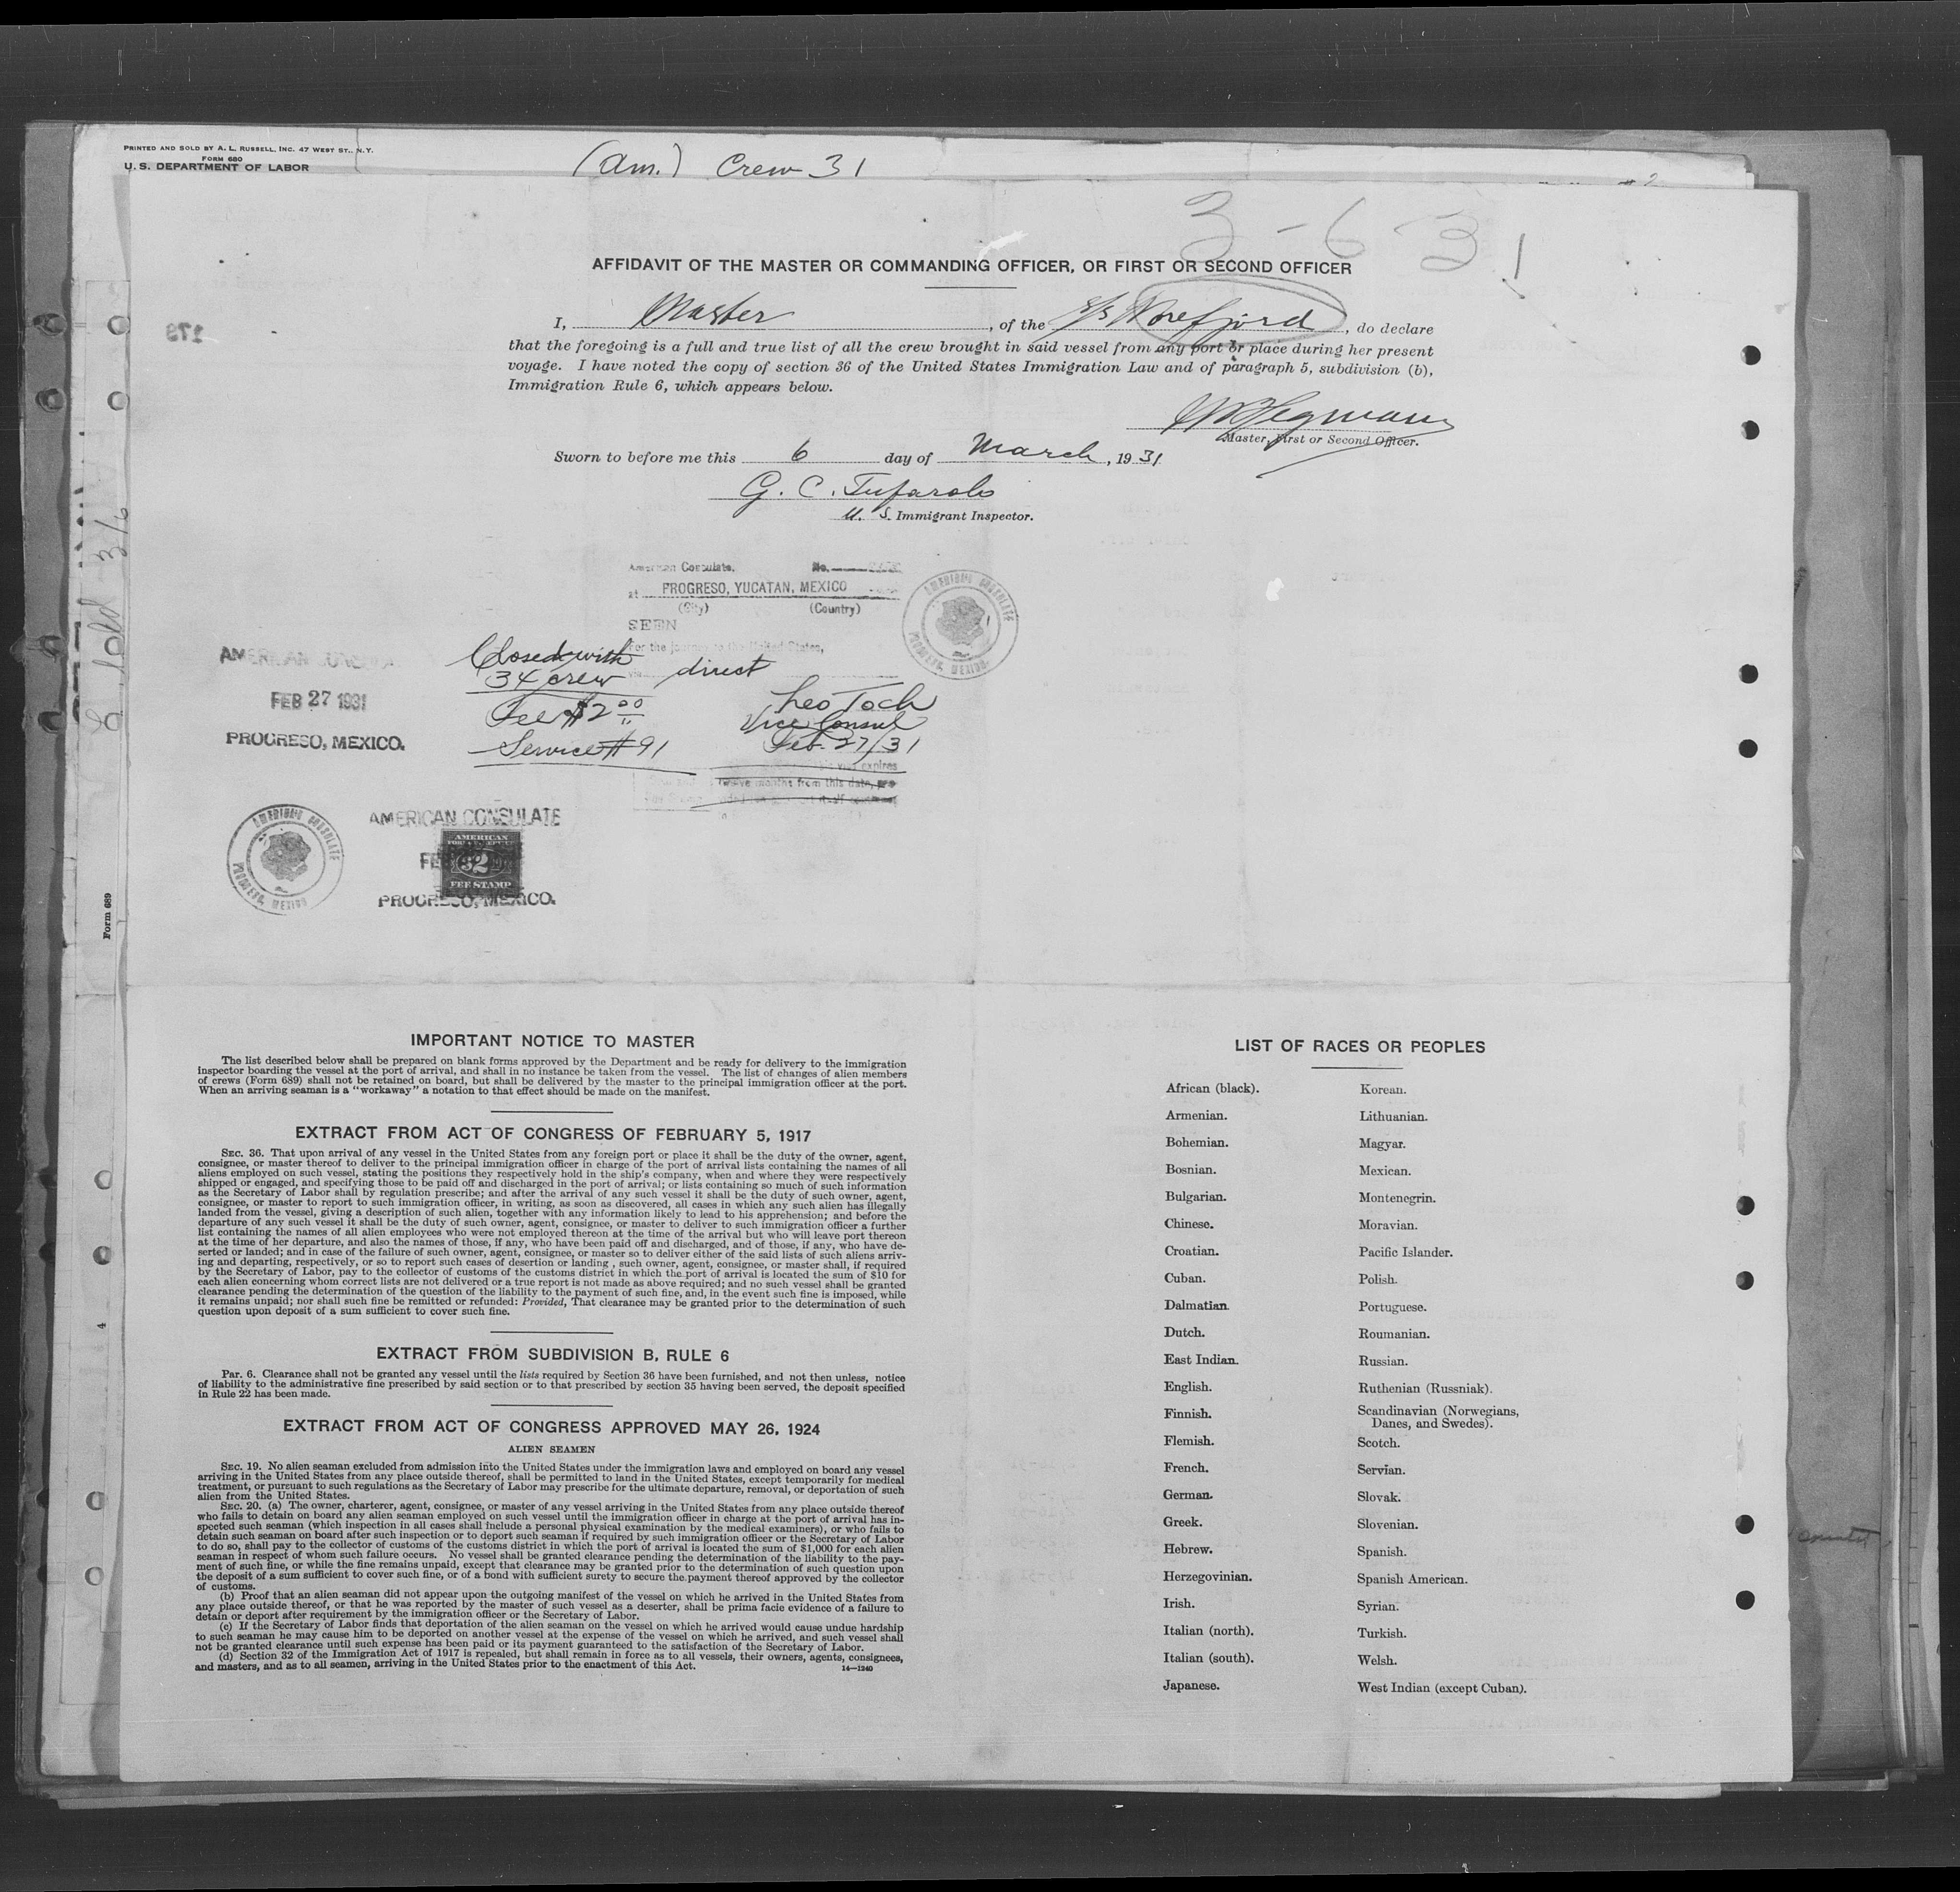 PRINTED AND SOLD BY A. L. RUSSELL, INC. 47 WEST ST., N.Y.
FORM 680
U. S. DEPARTMENT OF LABOR
(Am.) Crew 31
3-6 31
AFFIDAVIT OF THE MASTER OR COMMANDING OFFICER, OR FIRST OR SECOND OFFICER
I, Master, of the S/S Norefjord, do declare
that the foregoing is a full and true list of all the crew brought in said vessel from any port or place during her present
voyage. I have noted the copy of section 36 of the United States Immigration Law and of paragraph 5, subdivision (b),
Immigration Rule 6, which appears below.
Master, First or Second Officer.
Sworn to before me this 6 day of March, 1931
G. C. Tufarolo
U. S. Immigrant Inspector.
179
3/6
American Consulate, No.
at PROGRESO, YUCATAN, MEXICO
(City) (Country)
SEEN
For the journey to the United States,
via direct
Closed with
34 crew
Fee $2 00
Service # 91
Leo Toch
Vice Consul
Feb. 27/31
expires
twelve months from this date,
AMERICAN CONSULATE
PROGRESO, MEXICO.
AMERICAN CONSULATE
FEB 27 1931
PROGRESO, MEXICO.
AMERICAN CONSULATE
PROGRESO, MEXICO.
AMERICAN CONSULATE
AMERICAN
$2
FEE STAMP
PROGRESO, MEXICO.
Form 689
4
IMPORTANT NOTICE TO MASTER
The list described below shall be prepared on blank forms approved by the Department and be ready for delivery to the immigration
inspector boarding the vessel at the port of arrival, and shall in no instance be taken from the vessel. The list of changes of alien members
of crews (Form 689) shall not be retained on board, but shall be delivered by the master to the principal immigration officer at the port.
When an arriving seaman is a "workaway" a notation to that effect should be made on the manifest.
EXTRACT FROM ACT OF CONGRESS OF FEBRUARY 5, 1917
SEC. 36. That upon arrival of any vessel in the United States from any foreign port or place it shall be the duty of the owner, agent,
consignee, or master thereof to deliver to the principal immigration officer in charge of the port of arrival lists containing the names of all
aliens employed on such vessel, stating the positions they respectively hold in the ship's company, when and where they were respectively
shipped or engaged, and specifying those to be paid off and discharged in the port of arrival; or lists containing so much of such information
as the Secretary of Labor shall by regulation prescribe; and after the arrival of any such vessel it shall be the duty of such owner, agent,
consignee, or master to report to such immigration officer, in writing, as soon as discovered, all cases in which any such alien has illegally
landed from the vessel, giving a description of such alien, together with any information likely to lead to his apprehension; and before the
departure of any such vessel it shall be the duty of such owner, agent, consignee, or master to deliver to such immigration officer a further
list containing the names of all alien employees who were not employed thereon at the time of the arrival but who will leave port thereon
at the time of her departure, and also the names of those, if any, who have been paid off and discharged, and of those, if any, who have de-
serted or landed; and in case of the failure of such owner, agent, consignee, or master so to deliver either of the said lists of such aliens arriv-
ing and departing, respectively, or so to report such cases of desertion or landing , such owner, agent, consignee, or master, shall, if required
by the Secretary of Labor, pay to the collector of customs of the customs district in which the port of arrival is located the sum of $10 for
each alien concerning whom correct lists are not delivered or a true report is not made as above required; and no such vessel shall be granted
clearance pending the determination of the question of the liability to the payment of such fine, and, in the event such fine is imposed, while
it remains unpaid; nor shall such fine be remitted or refunded: Provided, That clearance may be granted prior to the determination of such
question upon deposit of a sum sufficient to cover such fine.
EXTRACT FROM SUBDIVISION B, RULE 6
Par. 6. Clearance shall not be granted any vessel until the lists required by Section 36 have been furnished, and not then unless, notice
of liability to the administrative fine prescribed by said section or to that prescribed by section 35 having been served, the deposit specified
in Rule 22 has been made.
EXTRACT FROM ACT OF CONGRESS APPROVED MAY 26, 1924
ALIEN SEAMEN
SEC. 19. No alien seaman excluded from admission into the United States under the immigration laws and employed on board any vessel
arriving in the United States from any place outside thereof, shall be permitted to land in the United States, except temporarily for medical
treatment, or pursuant to such regulations as the Secretary of Labor may prescribe for the ultimate departure, removal, or deportation of such
alien from the United States.
SEC. 20. (a) The owner, charterer, agent, consignee, or master of any vessel arriving in the United States from any place outside thereof
who fails to detain on board any alien seaman employed on such vessel until the immigration officer in charge at the port of arrival has in-
spected such seaman (which inspection in all cases shall include a personal physical examination by the medical examiners), or who fails to
detain such seaman on board after such inspection or to deport such seaman if required by such immigration officer or the Secretary of Labor
to do so, shall pay to the collector of customs of the customs district in which the port of arrival is located the sum of $1,000 for each alien
seaman in respect of whom such failure occurs. No vessel shall be granted clearance pending the determination of the liability to the pay-
ment of such fine, or while the fine remains unpaid, except that clearance may be granted prior to the determination of such question upon
the deposit of a sum sufficient to cover such fine, or of a bond with sufficient surety to secure the payment thereof approved by the collector
of customs.
(b) Proof that an alien seaman did not appear upon the outgoing manifest of the vessel on which he arrived in the United States from
any place outside thereof, or that he was reported by the master of such vessel as a deserter, shall be prima facie evidence of a failure to
detain or deport after requirement by the immigration officer or the Secretary of Labor.
(c) If the Secretary of Labor finds that deportation of the alien seaman on the vessel on which he arrived would cause undue hardship
to such seaman he may cause him to be deported on another vessel at the expense of the vessel on which he arrived, and such vessel shall
not be granted clearance until such expense has been paid or its payment guaranteed to the satisfaction of the Secretary of Labor.
(d) Section 32 of the Immigration Act of 1917 is repealed, but shall remain in force as to all vessels, their owners, agents, consignees,
and masters, and as to all seamen, arriving in the United States prior to the enactment of this Act.
14—1240
LIST OF RACES OR PEOPLES
African (black). Korean.
Armenian. Lithuanian.
Bohemian. Magyar.
Bosnian. Mexican.
Bulgarian. Montenegrin.
Chinese. Moravian.
Croatian. Pacific Islander.
Cuban. Polish.
Dalmatian. Portuguese.
Dutch. Roumanian.
East Indian. Russian.
English. Ruthenian (Russniak).
Finnish. Scandinavian (Norwegians,
Danes, and Swedes).
Flemish. Scotch.
French. Servian.
German. Slovak.
Greek. Slovenian.
Hebrew. Spanish.
Herzegovinian. Spanish American.
Irish. Syrian.
Italian (north). Turkish.
Italian (south). Welsh.
Japanese. West Indian (except Cuban).